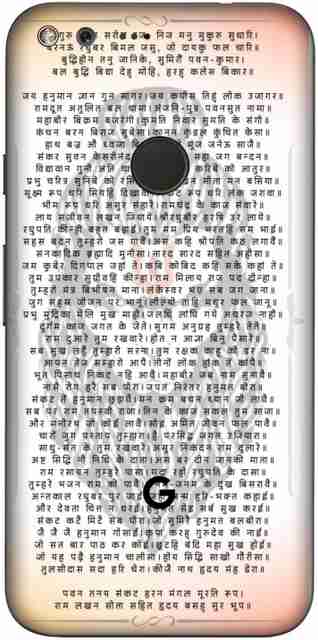 निज मनु मुकुरु सुधारि।
बरनऊं रघुबर बिमल जसु, जो दायकु फल चारि॥
बुद्धिहीन तनु जानिके, सुमिरौं पवन-कुमार।
बल बुद्धि बिद्या देहु मोहिं, हरहु कलेस बिकार॥
जय हनुमान ज्ञान गुन सागर।जय कपीस तिहुं लोक उजागर॥
रामदूत अतुलित बल धामा।अंजनि-पुत्र पवनसुत नामा॥
महाबीर बिक्रम बजरंगी।कुमति निवार सुमति के संगी॥
कंचन बरन बिराज सुबेसा।कानन कुंडल कुंचित केसा॥
हाथ बज्र औ ध्वजा मूंज जनेऊ साजै॥
संकर सुवन केसरीनंदन महा जग बन्दन॥
विद्यावान गुनी अति करिबे को आतुर॥
प्रभु चरित्र सुनिबे को सीता मन बसिया॥
सूक्ष्म रूप धरि सियहिं दिखावा। रूप धरि लंक जरावा॥
भीम रूप धरि असुर संहारे।रामचंद्र के काज संवारे॥
लाय सजीवन लखन जियाये।श्रीरघुबीर हरषि उर लाये॥
रघुपति कीन्ही बहुत बड़ाई।तुम मम प्रिय भरतहि सम भाई॥
सहस बदन तुम्हरो जस गावैं।अस कहि श्रीपति कंठ लगावैं॥
सनकादिक ब्रह्मादि मुनीसा।नारद सारद सहित अहीसा॥
जम कुबेर दिगपाल जहां ते।कबि कोबिद कहि सके कहां ते॥
तुम उपकार सुग्रीवहिं कीन्हा।राम मिलाय राज पद दीन्हा॥
तुम्हरो मंत्र बिभीषन माना।लंकेस्वर भए सब जग जाना॥
जुग सहस्र जोजन पर भानू।लील्यो ताहि मधुर फल जानू॥
प्रभु मुद्रिका मेलि मुख माहीं।जलधि लांघि गये अचरज नाहीं॥
दुर्गम काज जगत के जेते।सुगम अनुग्रह तुम्हरे तेते॥
राम दुआरे तुम रखवारे।होत न आज्ञा बिनु पैसारे॥
सब सुख लहै तुम्हारी सरना।तुम रक्षक काहू को डर ना॥
आपन तेज सम्हारो आपै।तीनों लोक हांक तें कांपै॥
भूत पिसाच निकट नहिं आवै।महाबीर जब नाम सुनावै॥
नासै रोग हरै सब पीरा।जपत निरंतर हनुमत बीरा॥
संकट तें हनुमान छुड़ावै।मन क्रम बचन ध्यान जो लावै॥
सब पर राम तपस्वी राजा।तिन के काज सकल तुम साजा॥
और मनोरथ जो कोई लावै।सोइ अमित जीवन फल पावै॥
चारों जुग परताप तुम्हारा।है परसिद्ध जगत उजियारा॥
साधु-संत के तुम रखवारे।असुर निकंदन राम दुलारे॥
अष्ट सिद्धि नौ निधि के दाता।अस बर दीन जानकी माता॥
राम रसायन तुम्हरे पासा।सदा रहो रघुपति के दासा॥
तुम्हरे भजन राम को पावै। जनम के दुख बिसरावै॥
अन्तकाल रघुबर पुर जाई। हरि-भक्त कहाई॥
और देवता चित्त न धरई। सेइ सर्ब सुख करई॥
संकट कटै मिटै सब पीरा।जो सुमिरै हनुमत बलबीरा॥
जै जै जै हनुमान गोसाईं।कृपा करहु गुरुदेव की नाईं॥
जो सत बार पाठ कर कोई।छूटहि बंदि महा सुख होई॥
जो यह पढ़ै हनुमान चालीसा।होय सिद्धि साखी गौरीसा॥
तुलसीदास सदा हरि चेरा।कीजै नाथ हृदय मंह डेरा॥
पवन तनय संकट हरन मंगल मूरति रूप।
राम लखन सीता सहित हृदय बसहु सुर भूप॥
G